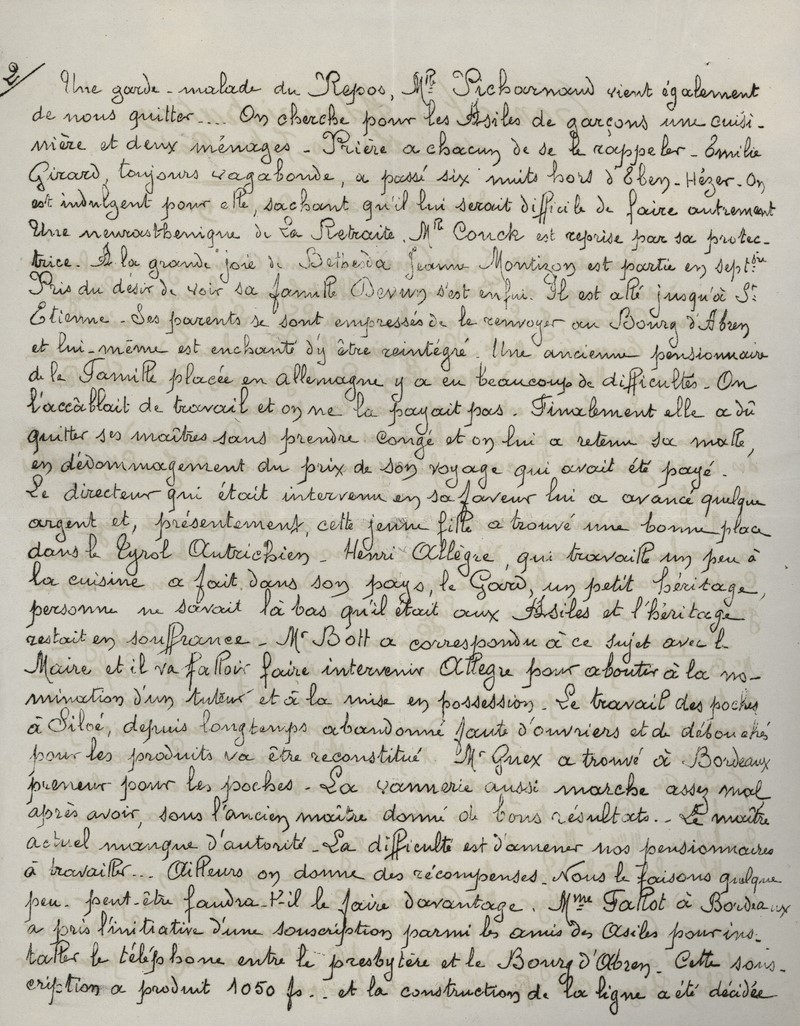 2/
Une garde-malade du Repos, Mlle Picharnaud vient également
de nous quitter.... On cherche pour les Asiles de garçons une cuisi-
nière et deux ménages - Prière a chacun de se le rappeler - Emilie
Girard, toujours vagabonde, a passé six nuits hors d'Eben-Hézer - On
est indulgent pour elle, sachant qu'il lui serait difficile de faire autrement
Une neurasthenique de La Retraite. Mlle Couck est reprise par sa protec-
trice. A la grande joie de Bethesda Jeanne Montizon est partie en septbre
Pris du désir de voir sa famille s'est enfui. Il est allé jusqu'à St
Etienne - Ses parents se sont empressés de le renvoyer au Bourg d'Abren
et lui-même est enchanté d'y être reintégré. Une ancienne pensionnaire
de la Famille placée en Allemagne y a eu beaucoup de difficultés - On
l'accablait de travail et on ne la payait pas. Finalement elle a dû
quitter ses maîtres sans prendre congé et on lui a retenu sa malle,
en dédommagement du prix de son voyage qui avait été payé.
Le directeur qui était intervenu en sa faveur lui a avancé quelque
argent et, présentement, cette jeune fille a trouvé une bonne place
dans le Tyrol Autrichien - Henri Allègre, qui travaille un peu à
la cuisine a fait dans son pays, le Gard, un petit héritage,
personne ne savait là bas qu'il était aux Asiles et l'héritage
restait en souffrance - Mr Bott a correspondu à ce sujet avec le
Maire et il va falloir faire intervenir Allègre pour abouter à la no-
mination d'un tuteur et à la mise en possession - Le travail des poches
à Siloé, depuis longtemps abandonné faute d'ouvriers et de débouchés
pour les produits va être reconstitué Mr Guex a trouvé à Bordeaux
preneur pour les poches - La vannerie aussi marche assez mal
après avoir, sous l'ancien maître donné de bons résultats.. Le maître
actuel manque d'autorité - La difficulté est d'amener nos pensionnaires
à travailler... Ailleurs on donne des récompenses - Nous le faisons quelque
peu - peut-être faudra-t-il le faire davantage. Mme Fallot à Bordeaux
a pris l'initiative d'une souscription parmi les amis des Asiles pour ins-
taller le téléphone entre le presbytère et le Bourg d'Abren - Cette sous-
cription a produit 1050 fs.. et la construction de la ligne a été décidée